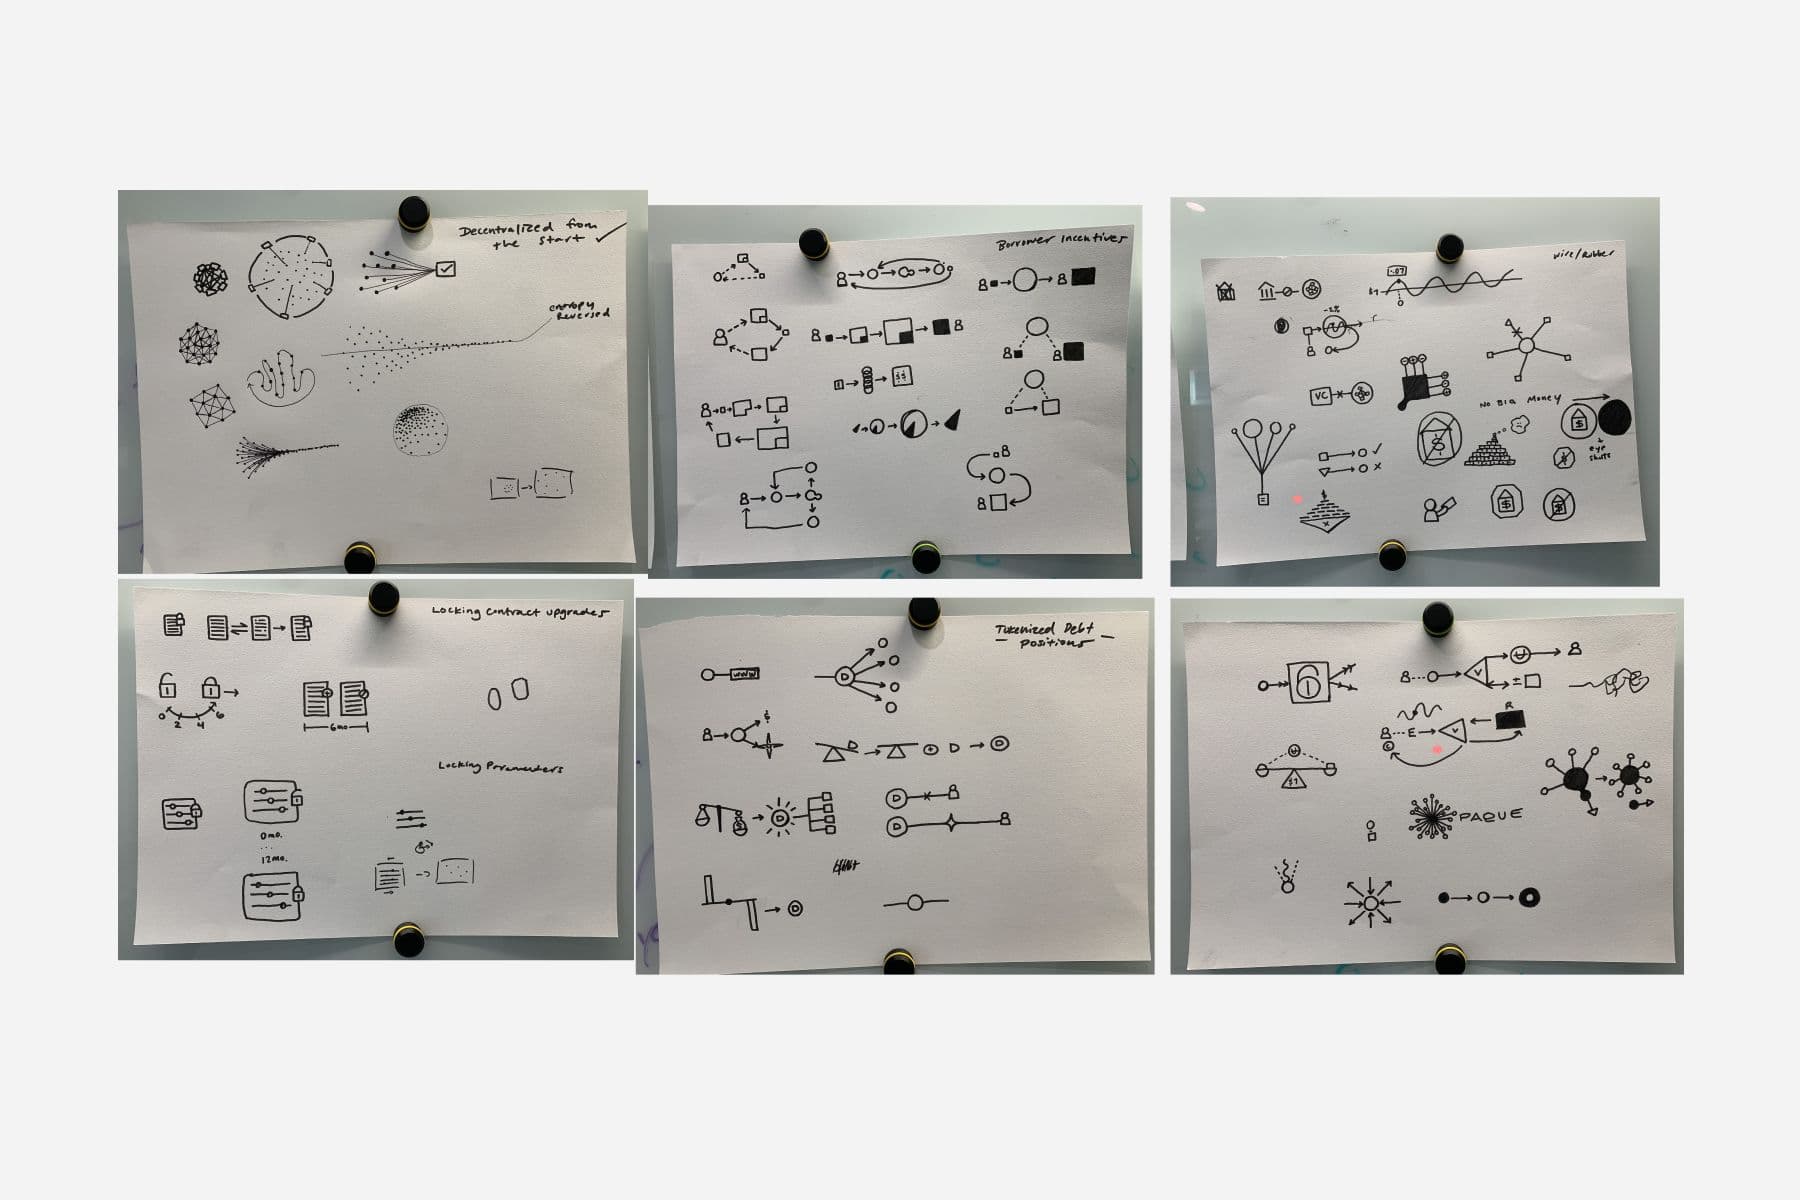 Decentralized from
the start ✓
entropy
reversed
Borrower Incentives
$ $
wire/rubber
-.07
$1
-2%
VC
No BIG MONEY
$
$
+
eye
shuts
$
$
$
$
Locking contract upgrades
0 2 4 6
6mo
Locking Parameters
0mo.
...
12mo.
Tokenized Debt
Positions
www
D
$
D
D
D
$
D
D
D
D
V
±
R
E
V
$1
PAQUE